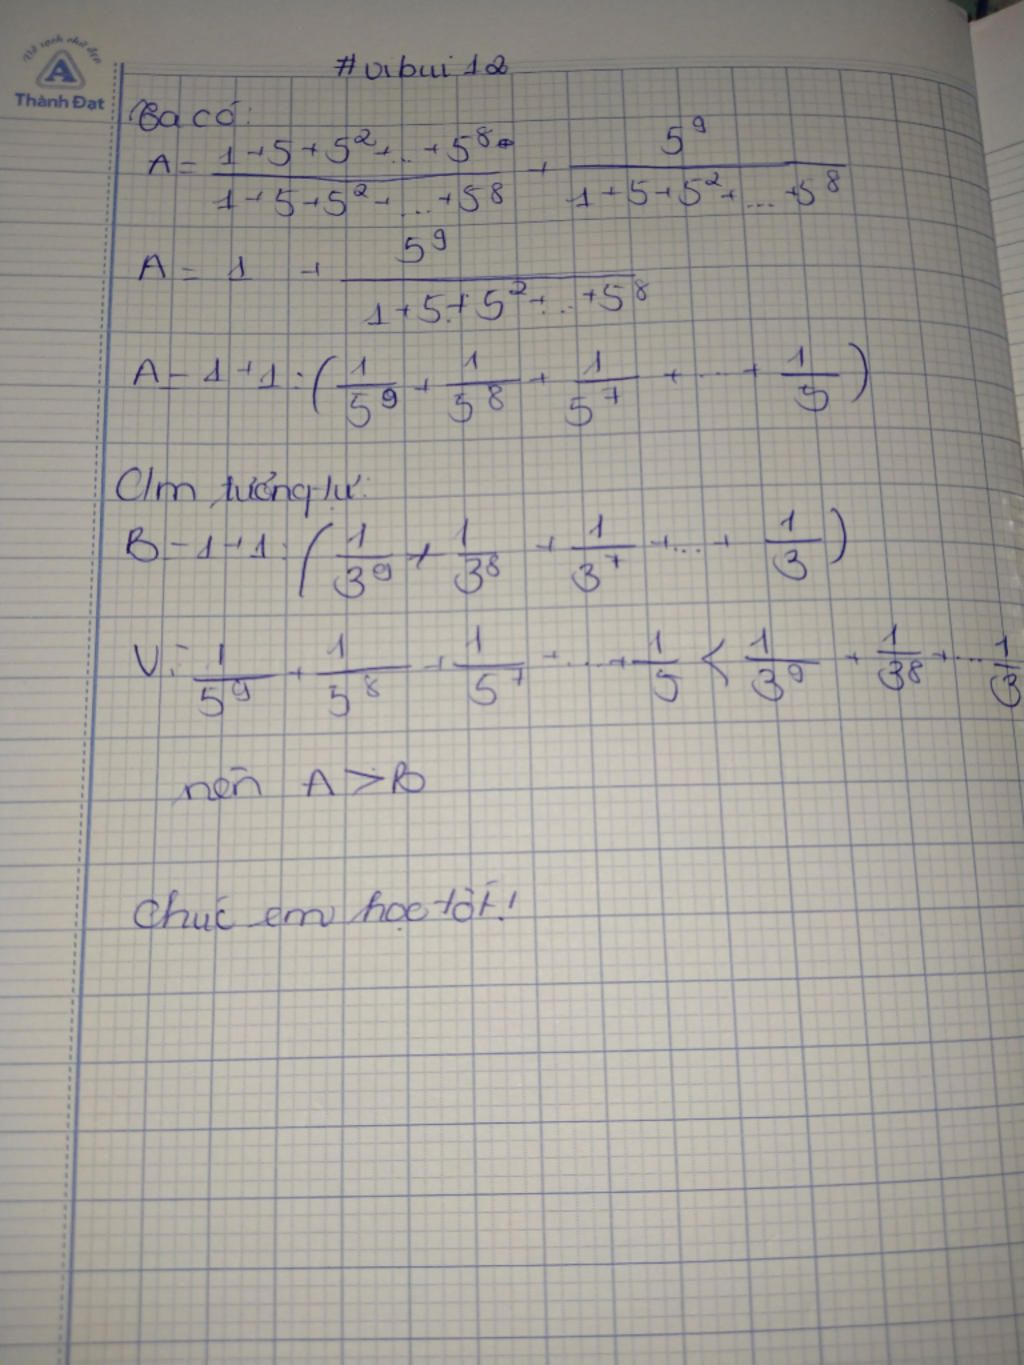 Vở sạch chữ đẹp
A
Thành Đạt
#vibui12
Ta có:
A = (1+5+5²+...+5⁸)/(1+5+5²+...+5⁸) + 5⁹/(1+5+5²+...+5⁸)
A = 1 + 5⁹/(1+5+5²+...+5⁸)
A = 1 + 1 : (1/5⁹ + 1/5⁸ + 1/5⁷ + ... + 1/5)
C/m tương tự:
B = 1 + 1 : (1/3⁹ + 1/3⁸ + 1/3⁷ + ... + 1/3)
Vì 1/5⁹ + 1/5⁸ + 1/5⁷ + ... + 1/5 < 1/3⁹ + 1/3⁸ + ... 1/3
nên A > B
Chúc em học tốt!